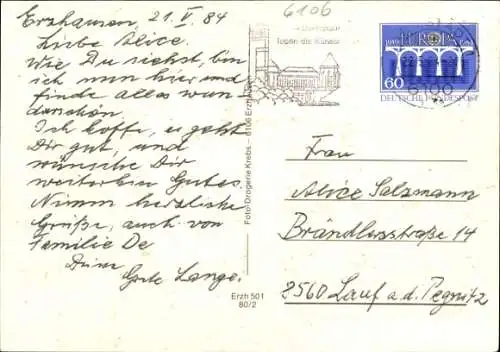 Erzhausen, 21. V. 84
Liebe Alice.
Wie Du siehst, bin
ich nun hier und
finde alles wun
derschön.
Ich hoffe, es geht
Dir gut, und
wünsche Dir
weiterhin Gutes.
Nimm herzliche
Grüße, auch von
Familie De
Deine
Grete Lange.
Foto-Drogerie Krebs – 6106 Erzhausen
Erzh 501
80/2
6106
Künste
1959 EUROPA 1984
60
DEUTSCHE BUNDESPOST
6100
Frau
Alice Salzmann
Brändlersstraße 14
8560 Lauf a.d. Pegnitz